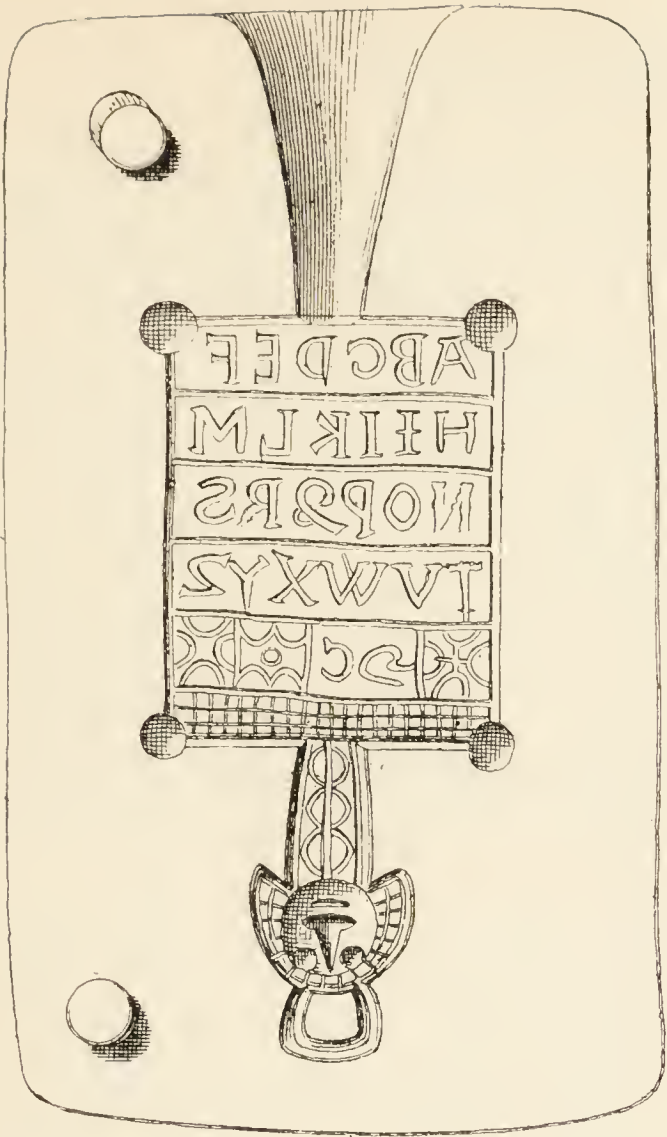 ABCDEF
HIIKLM
NOPQRS
TVWXYZ